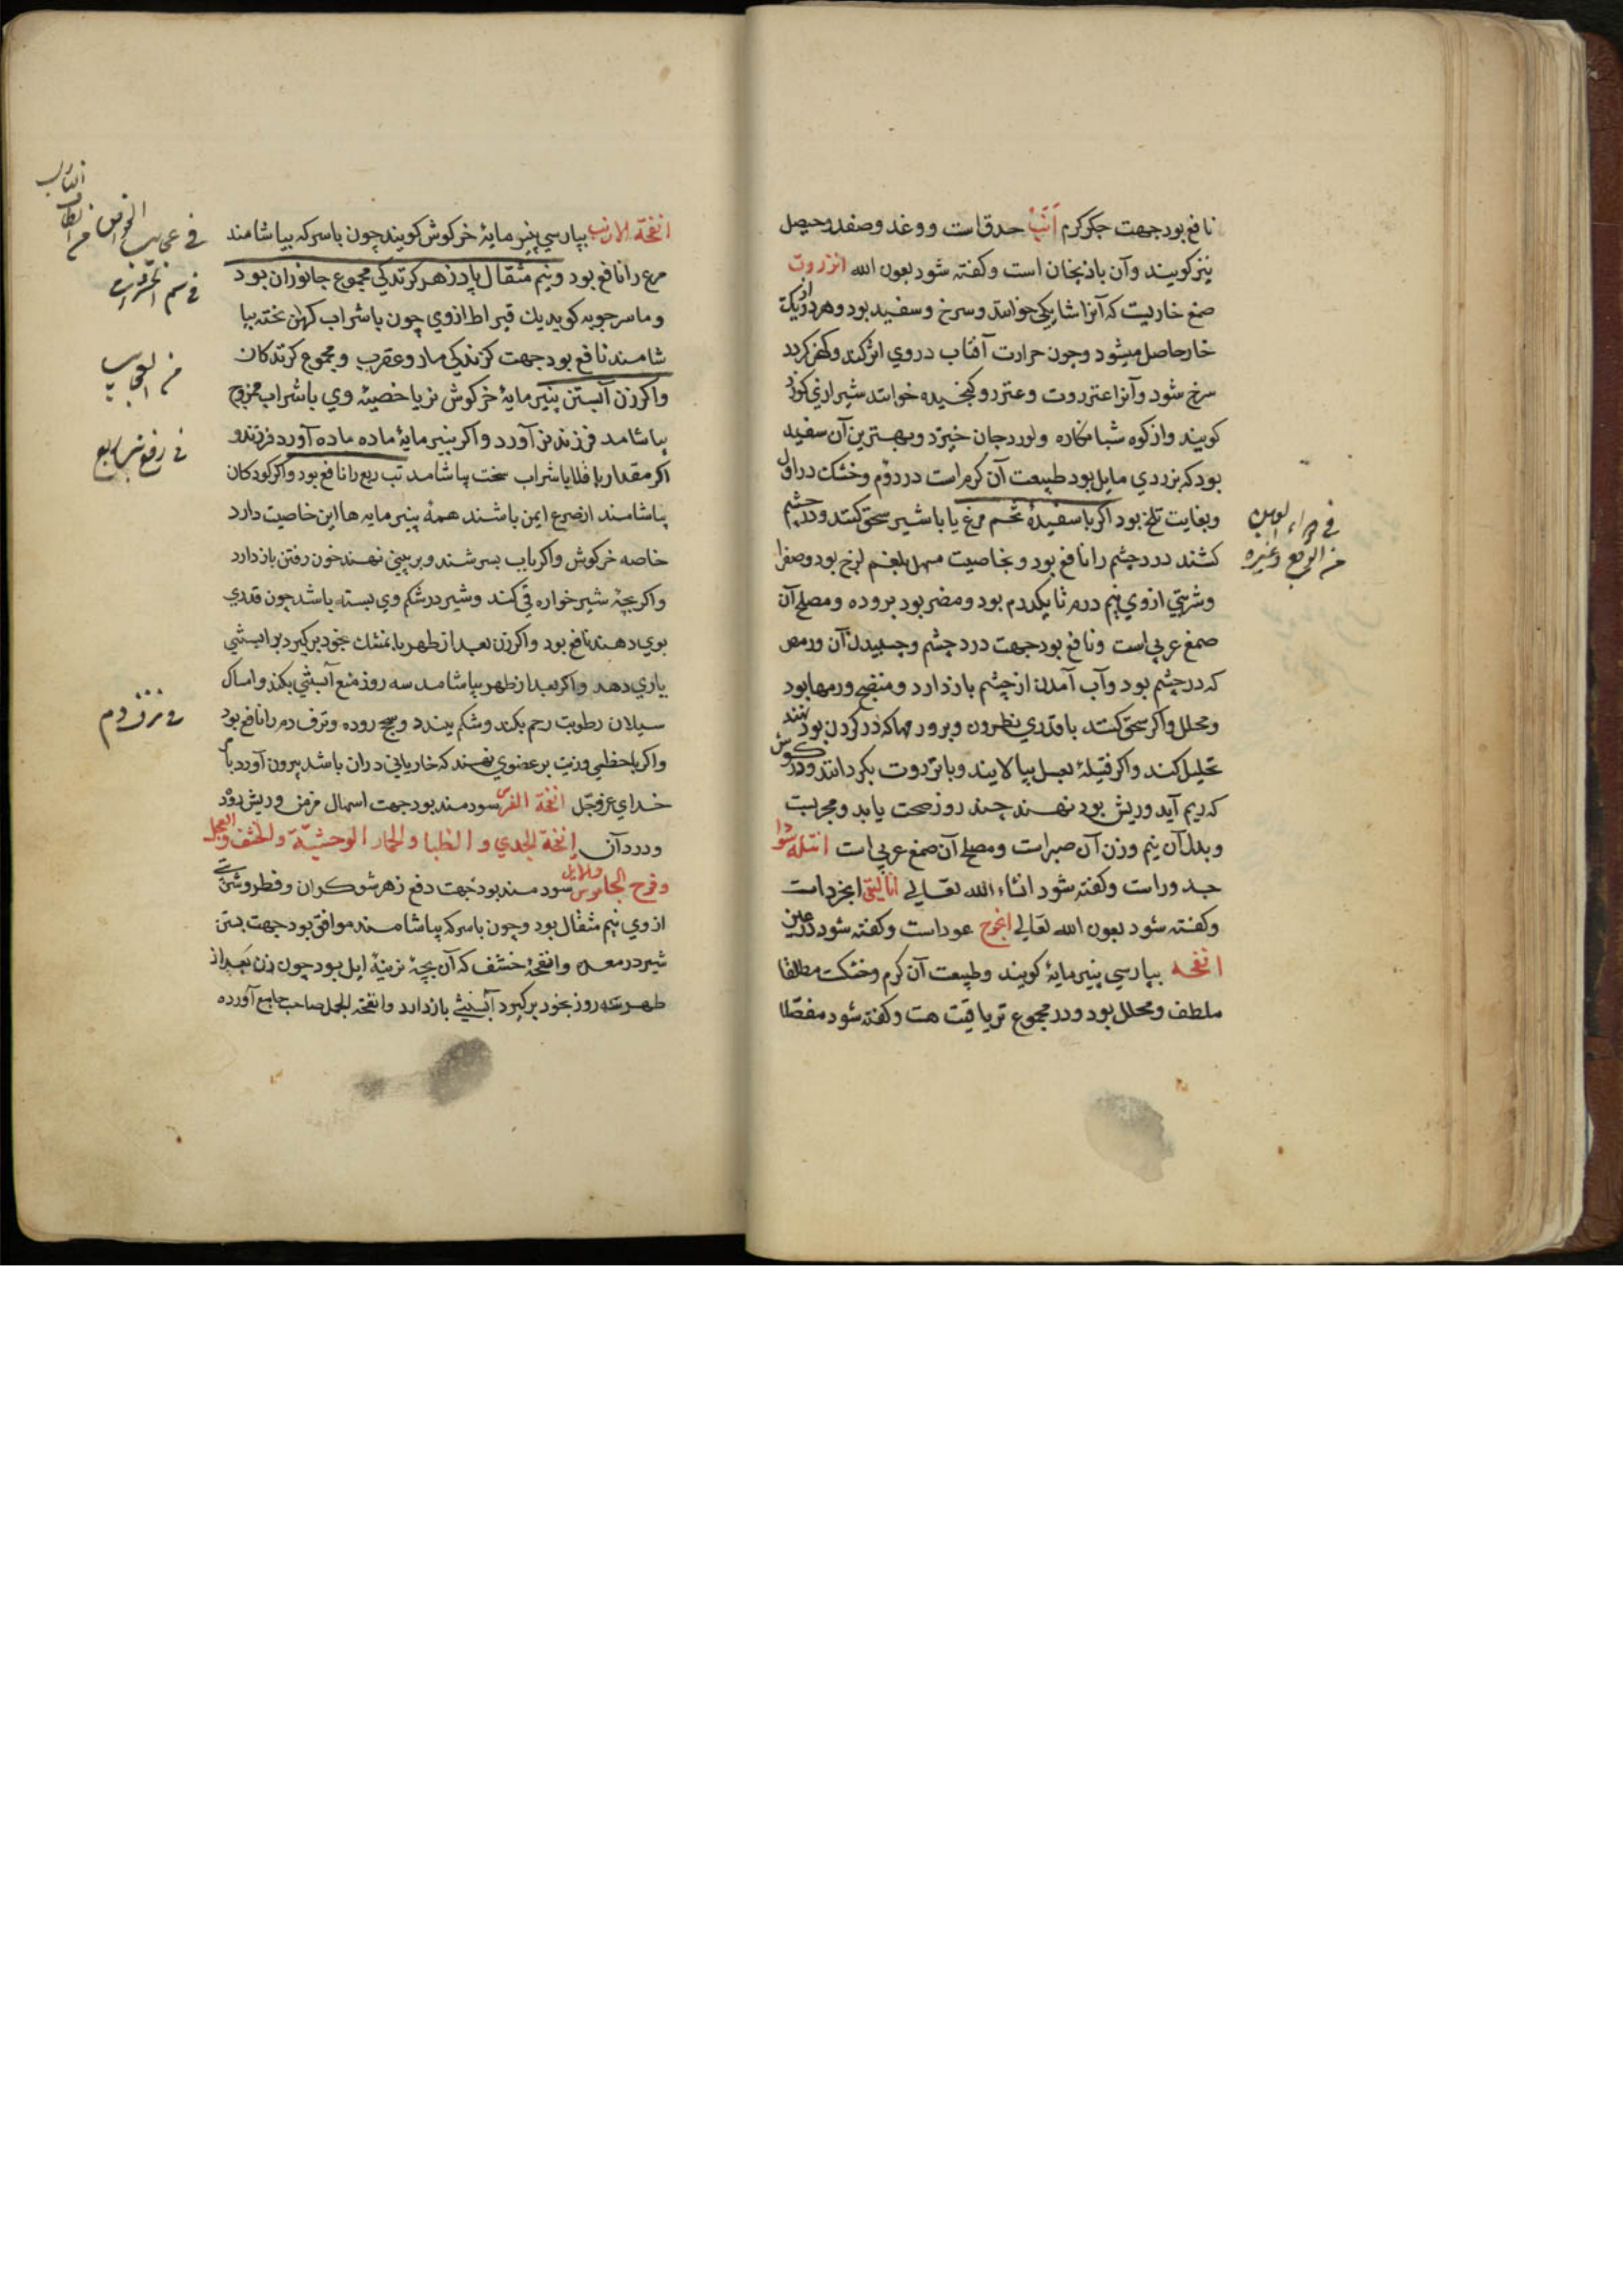 نافع بود جهت جکر کرم انب حدق است و وغد و صفد و حیصل
نیز کویند وآن باذنجان است وکفته شود بعون الله انزروت
صمغ خاریست که آنرا شایکه خوانند و سرخ و سفید بود و هر دو از یک
خار حاصل میشود و چون حرارت آفتاب در وی اثر کند و کهن کردد
سرخ شود وآنرا عنزروت و عنزرو و کنجیده خوانند شیرازی کوزد
کویند و از کوه شبانکاره و لوردجان خیزد و بهترین آن سفید
بود که بزردی مایل بود طبیعت آن کرم است در دوم و خشک در اول
وبغایت تلخ بود اکر با سفیدهٔ تخم مرغ یا با شیر سحق کنند و در چشم
کشند درد چشم را نافع بود و بخاصیت مسهل بلغم لزج بود و صفرا
و شربتی از وی نیم درم تا یکدرم بود و مضر بود بروده و مصلح آن
صمغ عربی است و نافع بود جهت درد چشم و چسپیدن آن و رمص
که در چشم بود و آب آمدن از چشم بازدارد و منضج ورمها بود
و محلل و اکر سحق کنند با قدری نطرون و بر ورمها که در کردن بود نهند
تحلیل کند و اکر فتیلهٔ بعسل بیالایند و بانزروت بکردانند و در کوش
که ریم آید و ریش بود نهند چند روز صحت یابد و مجربست
و بدل آن نیم وزن آن صبر است و مصلح آن صمغ عربی است انتله سودا
جدوراست وکفته شود انشاء الله تعالی انالیتی انجرداست
وکفته شود بعون الله تعالی انجوج عوداست وکفته شود در عین
انفحه بپارسی پنیر مایهٔ کویند و طبیعت آن کرم و خشکست مطلقا
ملطف و محلل بود و در مجموع تریاقیت هست وکفته شود مفصّلا
فی
من الوجع وغیره
انفحة الارنب بپارسی پنیر مایهٔ خرکوش کویند چون با سرکه بیاشامند
صرع را نافع بود و نیم مثقال پادزهر کزندکی مجموع جانوران بود
و ماسرجویه کوید یک قیراط از وی چون با شراب کهن پخته بیا
شامند نافع بود جهت کزندکی مار و عقرب و مجموع کزندکان
واکر زن آبستن پنیر مایهٔ خرکوش نر یا خصیهٔ وی با شراب ممزوج
بیاشامد فرزند نر آورد و اکر پنیر مایهٔ ماده ماده آورد فرزند و
اکر مقدار باقلا با شراب سخت بیاشامد تب ربع را نافع بود و اکر کودکان
بیاشامند از صرع ایمن باشند همهٔ پنیر مایه ها این خاصیت دارد
خاصه خرکوش و اکر باب بسرشند و بر بینی نهند خون رفتن بازدارد
و اکر بچهٔ شیر خواره قی کند و شیر در شکم وی بسته باشد چون قدری
بوی دهند نافع بود و اکر زن بعد از طهر با مشک بخود برکیرد بر ابستنی
یاری دهد و اکر بعد از طهر بیاشامد سه روز منع آبستنی بکند و امساک
سیلان رطوبت رحم بکند و شکم ببندد و سحج روده و نزف دم را نافع بود
و اکر با خطمی و زیت بر عضوی نهند که خار یا نی در آن باشد بیرون آورد بامر
خدای عزوجل انفحة الفرس سودمند بود جهت اسهال مزمن و ریش روده
و درد آن انفحة الجدی و الظبا و الحمار الوحشیّة و الخشف و العجل
وفرخ الجاموس والایل سودمند بود جهت دفع زهر شوکران و فطر و شربتی
از وی نیم مثقال بود و چون با سرکه بیاشامند موافق بود جهت بستن
شیر در معده و انفحهٔ خشف که آن بچهٔ نرینهٔ ایل بود چون زن بعد از
طهر سه روز بخود برکیرد آبستنی بازدارد و انفحة الجمل صاحب جامع آورده
فی عجایب الخواص
فی سم الحشرات
من العجایب
فی رفع تب ربع
فی نزف دم